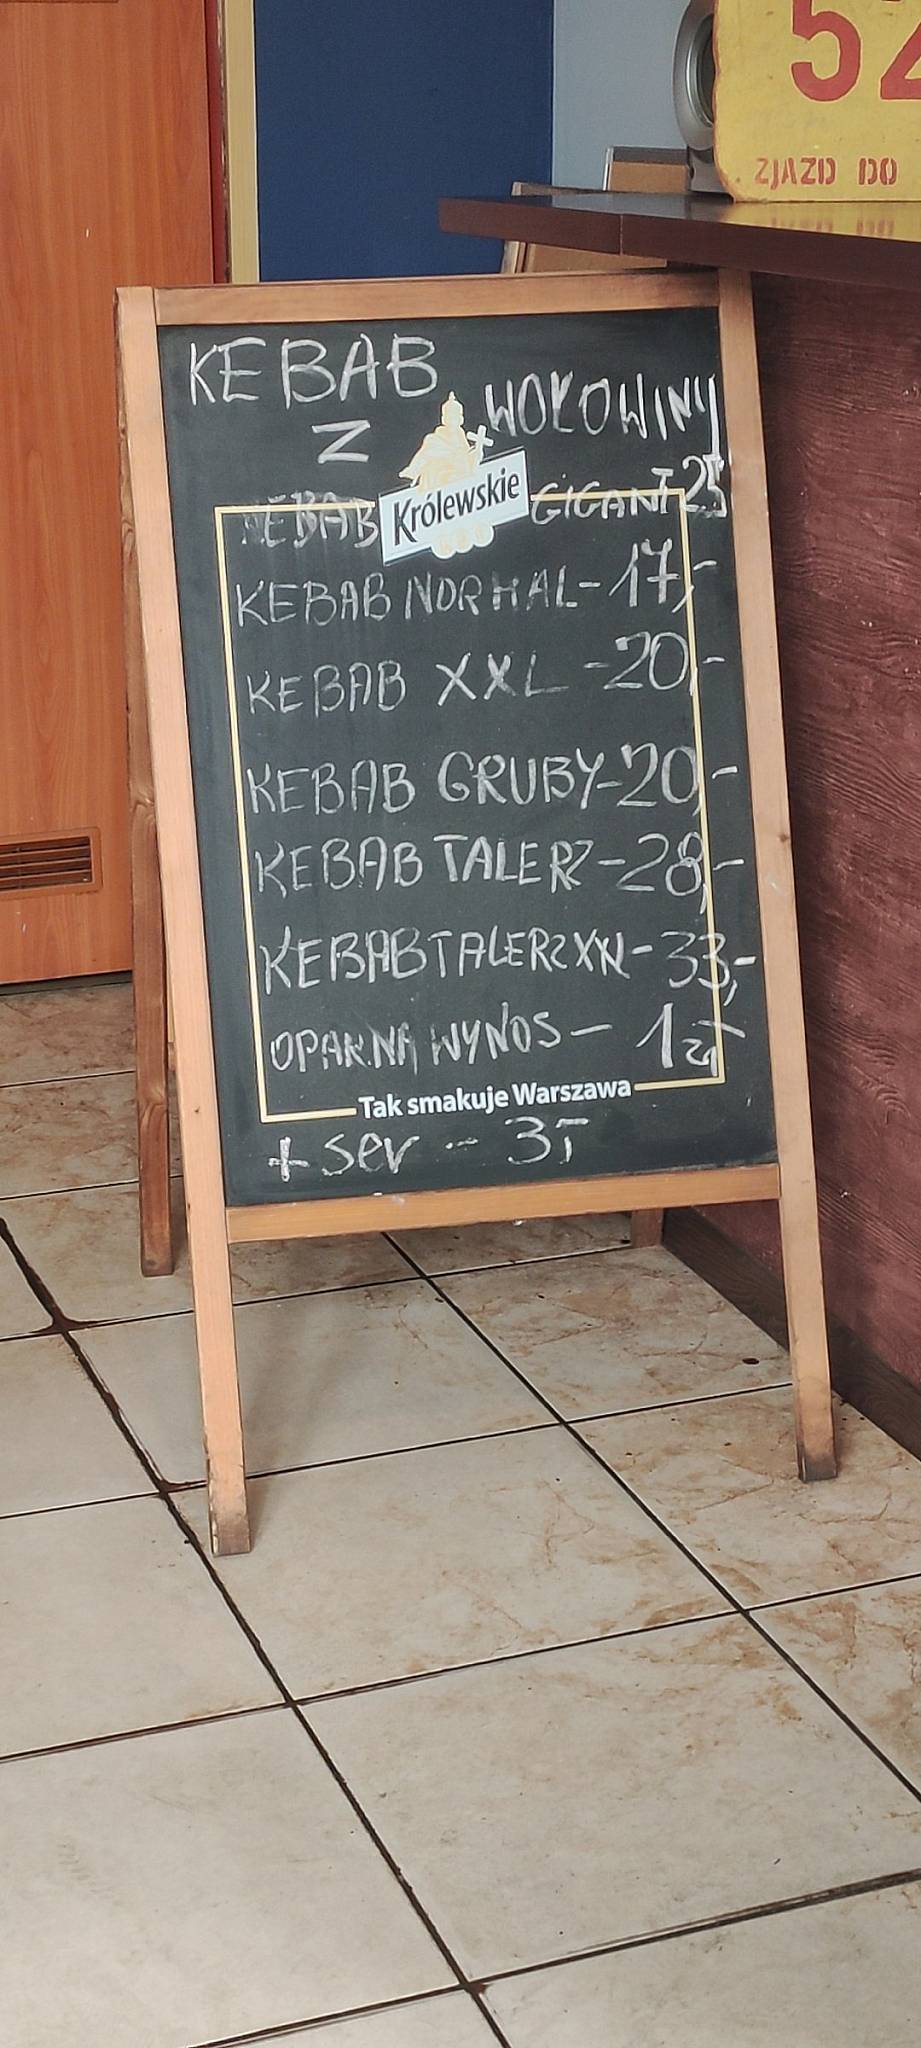 52
ZJAZD DO
KEBAB
Z WOŁOWINY
Królewskie
KEBAB GIGANT 25
KEBAB NORMAL - 17,-
KEBAB XXL - 20,-
KEBAB GRUBY - 20,-
KEBAB TALERZ - 28,-
KEBAB TALERZ XXL - 33,-
OPAK.NA WYNOS - 1 zł
Tak smakuje Warszawa
+ ser - 3,-